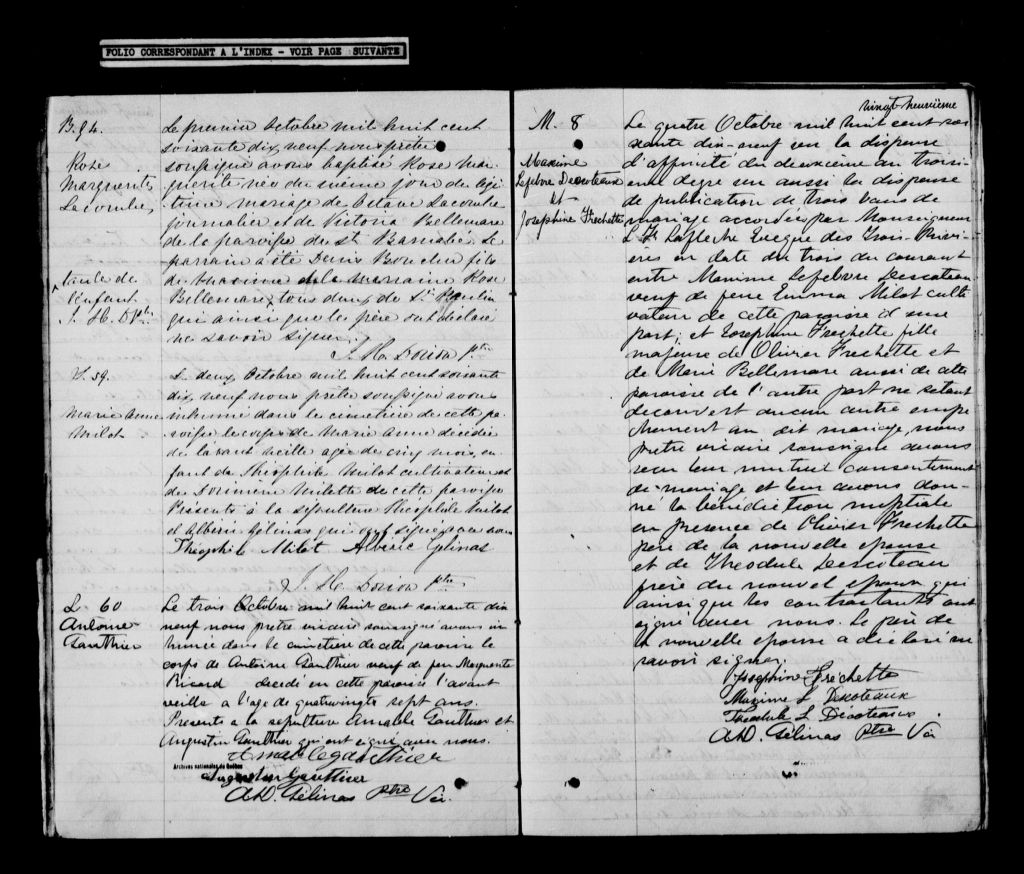 FOLIO CORRESPONDANT A L'INDEX - VOIR PAGE SUIVANTE
B. 94.
Rose
Marguerite
Lacombe
tante de
l'enfant
J. H. D Ptr.
Le premier octobre mil huit cent
soixante dix neuf nous prêtre
soussigné avons baptisé Rose Mar
guerite née du même jour du légi
time mariage de Octave Lacombe
journalier et de Victoria Bellemare
de la paroisse de St Barnabé. Le
parrain a été Denis Boucher fils
de Maxime et la marraine Rose
Bellemare tous deux de St Paulin
qui ainsi que le père ont déclaré
ne savoir signer.
J. H. Dorion Ptre
S. 59.
Marie Anne
Milot
Le deux Octobre mil huit cent soixante
dix neuf nous prêtre soussigné avons
inhumé dans le cimetière de cette pa-
roisse le corps de Marie Anne décédée
de l'avant veille agée de cinq mois, en
fant de Théophile Milot cultivateur et
de Dorimène Milette de cette paroisse
Présents à la sépulture Théophile Milot
et Albéric Gélinas qui ont signé avec nous
Théophile Milot Albéric Gélinas
J. H. Dorion ptre
S. 60
Antoine
Gauthier
Le trois Octobre mil huit cent soixante dix
neuf nous pretre vicaire soussigné avons in
humé dans le cimetière de cette paroisse le
corps de Antoine Gauthier veuf de feu Marguerite
Ricard decedé en cette paroisse l'avant
veille a l'age de quatrevingts sept ans.
Presents a la sepulture Amable Gauthier et
Augustin Gauthier qui ont signé avec nous.
Amable Gauthier
Archives nationales du Québec
Augustin Gauthier
A.D. Gélinas Ptre Vic.
vingt-neuvième
M. 8
Maxime
Lefebvre Descoteaux
et
Josephine Frechette
Le quatre Octobre mil huit cent soi
xante dix-neuf vu la dispense
d'affinité du deuxieme au troisi
eme degre vu aussi la dispense
de publication de trois bans de
mariage accordée par Monseigneur
L. F. Lafleche Eveque des Trois-Rivi
eres en date du trois du courant
entre Maxime Lefebvre Descoteau
veuf de feue Emma Milot culti
vateur de cette paroisse d'une
part; et Josephine Frechette fille
majeure de Olivier Frechette et
de Marie Bellemare aussi de cette
paroisse de l'autre part ne setant
decouvert aucun autre empe
chement au dit mariage, nous
pretre vicaire soussigné avons
recu leur mutuel consentement
de mariage et leur avons don-
né la bénédiction nuptiale
en presence de Olivier Frechette
pere de la nouvelle epouse
et de Theodule Descoteau
frere du nouvel epoux qui
ainsi que les contractants ont
signé avec nous. Le pere de
la nouvelle epouse a déclaré ne
savoir signer.
Josephine Frechette
Maxime L Descoteaux
Théodule L Décoteaux
A.D. Gélinas Ptre Vic